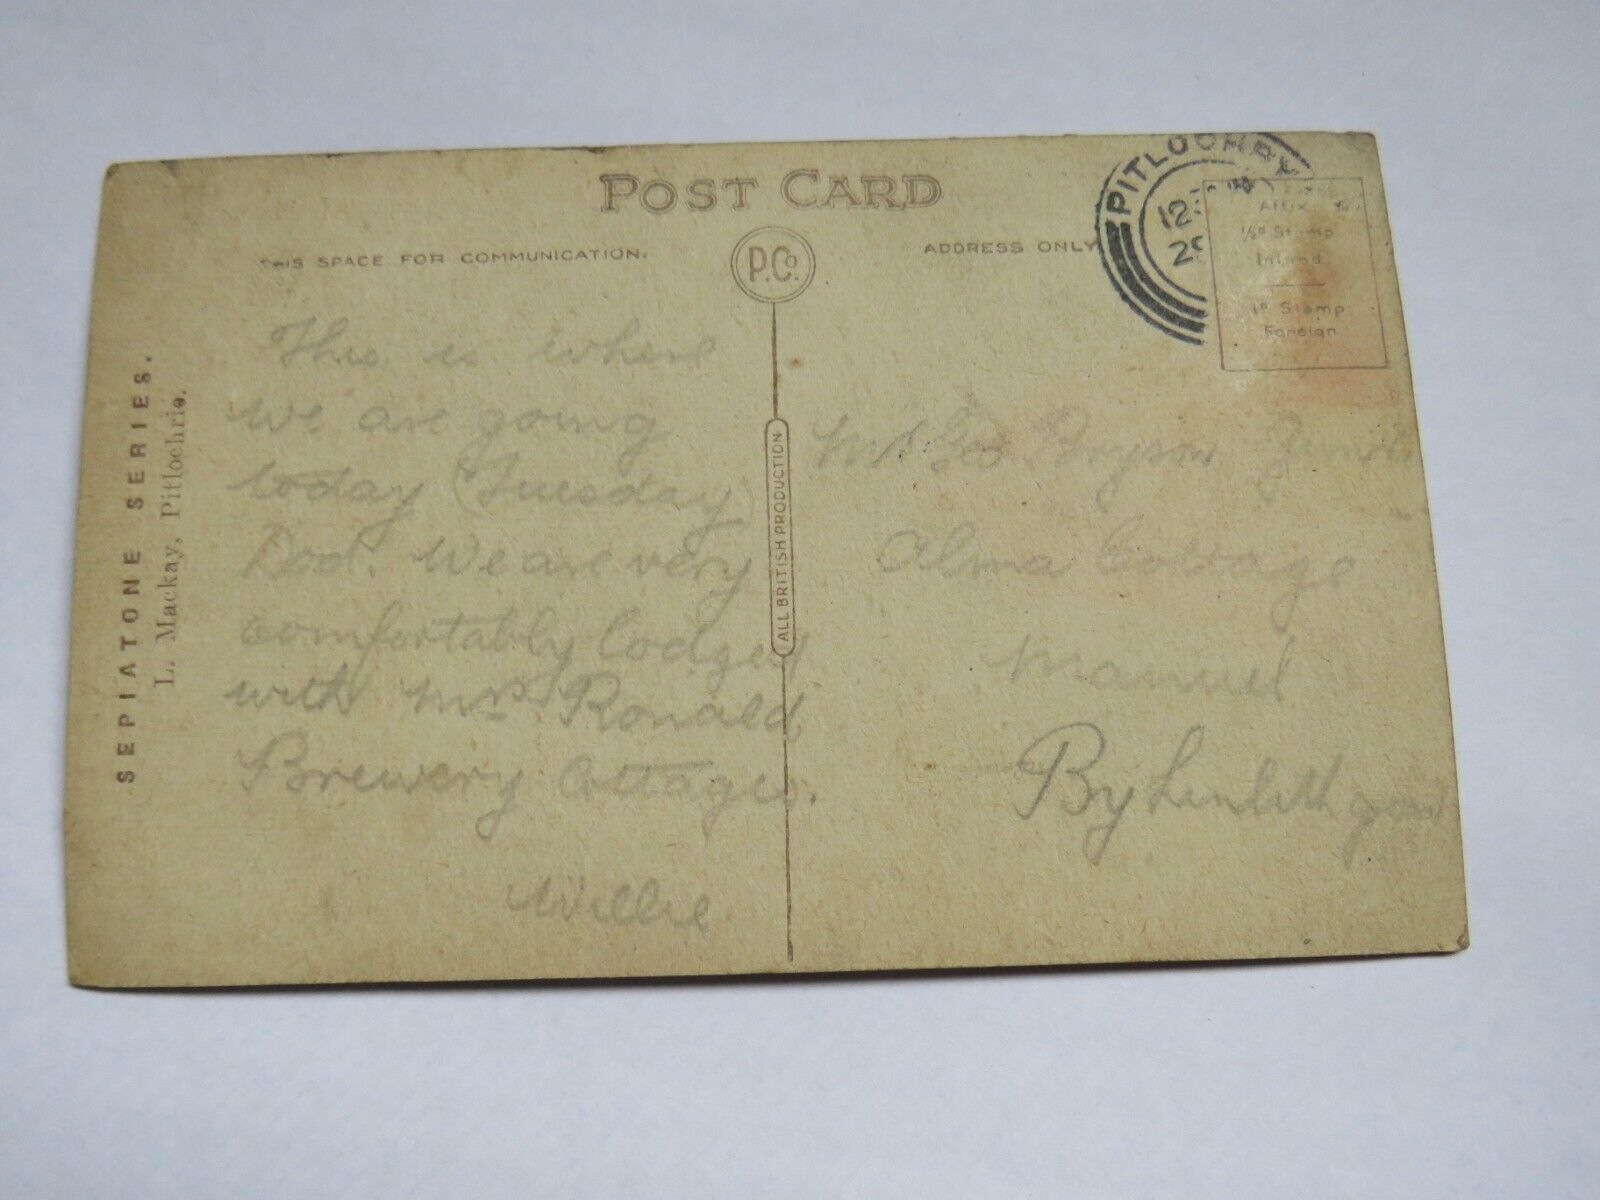 POST CARD
THIS SPACE FOR COMMUNICATION.
P.Co.
ADDRESS ONLY
PITLOCHRY
12
Affix
½d Stamp
Inland
1d Stamp
Foreign
SEPIATONE SERIES.
L. Mackay, Pitlochrie.
ALL BRITISH PRODUCTION
This is where
we are going
today (Tuesday)
Dod. We are very
comfortably lodged
with Mrs Ronald,
Brewery Cottages.
Willie
Geo.
Alma Cottage
Manuel
By Linlithgow